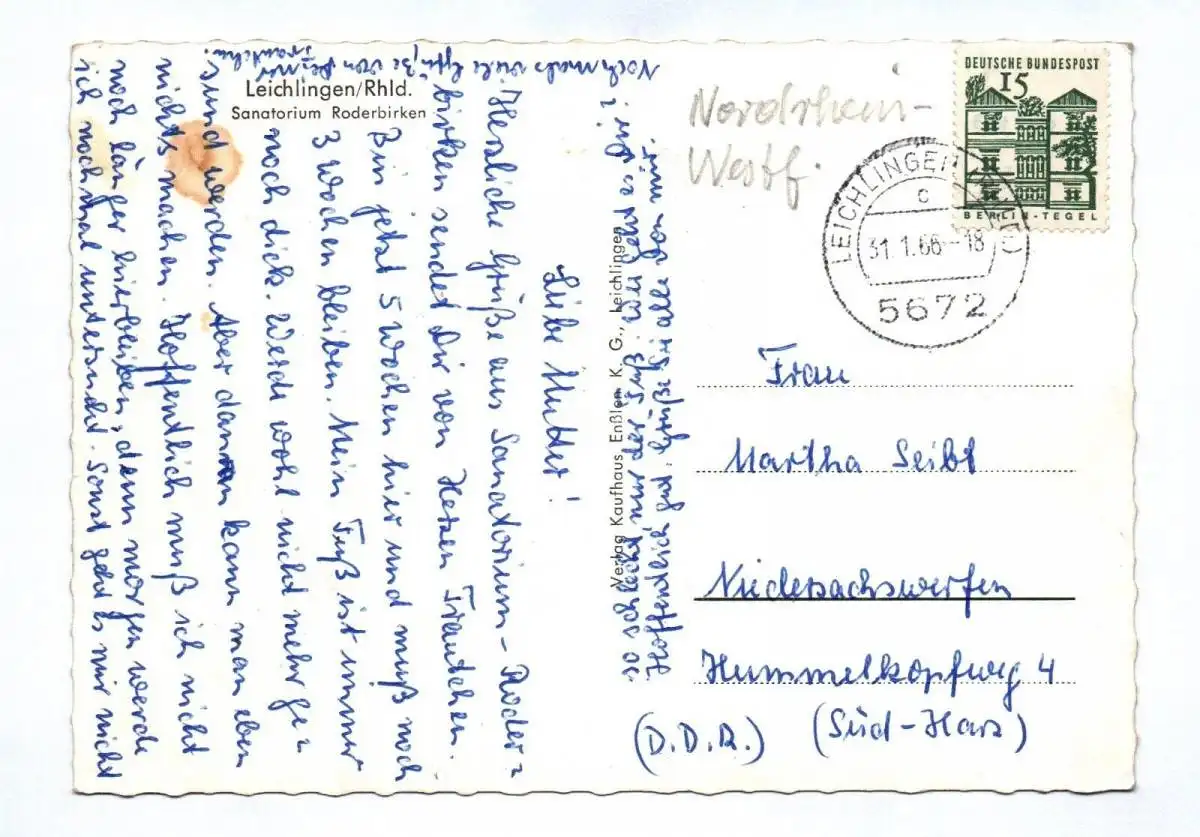 Leichlingen/Rhld.
Sanatorium Roderbirken
Liebe Mutter!
Herzliche Grüße aus Sanatorium-Roder=
birken sendet Dir von Herzen Trautchen.
Bin jetzt 5 Wochen hier und muß noch
3 Wochen bleiben. Mein Fuß ist immer
noch dick. Werde wohl nicht mehr ge=
sund werden. Aber dann kann man eben
nichts machen. Hoffentlich muß ich nicht
noch länger hierbleiben, denn morgen werde
ich nochmal untersucht. Sonst geht es mir nicht
so schlecht nur der Fuß. Wie geht es Dir?
Hoffentlich gut. Grüße Sie alle von mir.
Nochmals viele Grüße von Deiner
Trautchen.
Verlag Kaufhaus Enßlen K. G., Leichlingen
Nordrhein-
Westf.
DEUTSCHE BUNDESPOST
15
BERLIN-TEGEL
LEICHLINGEN
c
31.1.66-18
5672
Frau
Martha Seibt
Niedersachswerfen
Hummelkopfweg 4
(D.D.R.) (Süd-Harz)